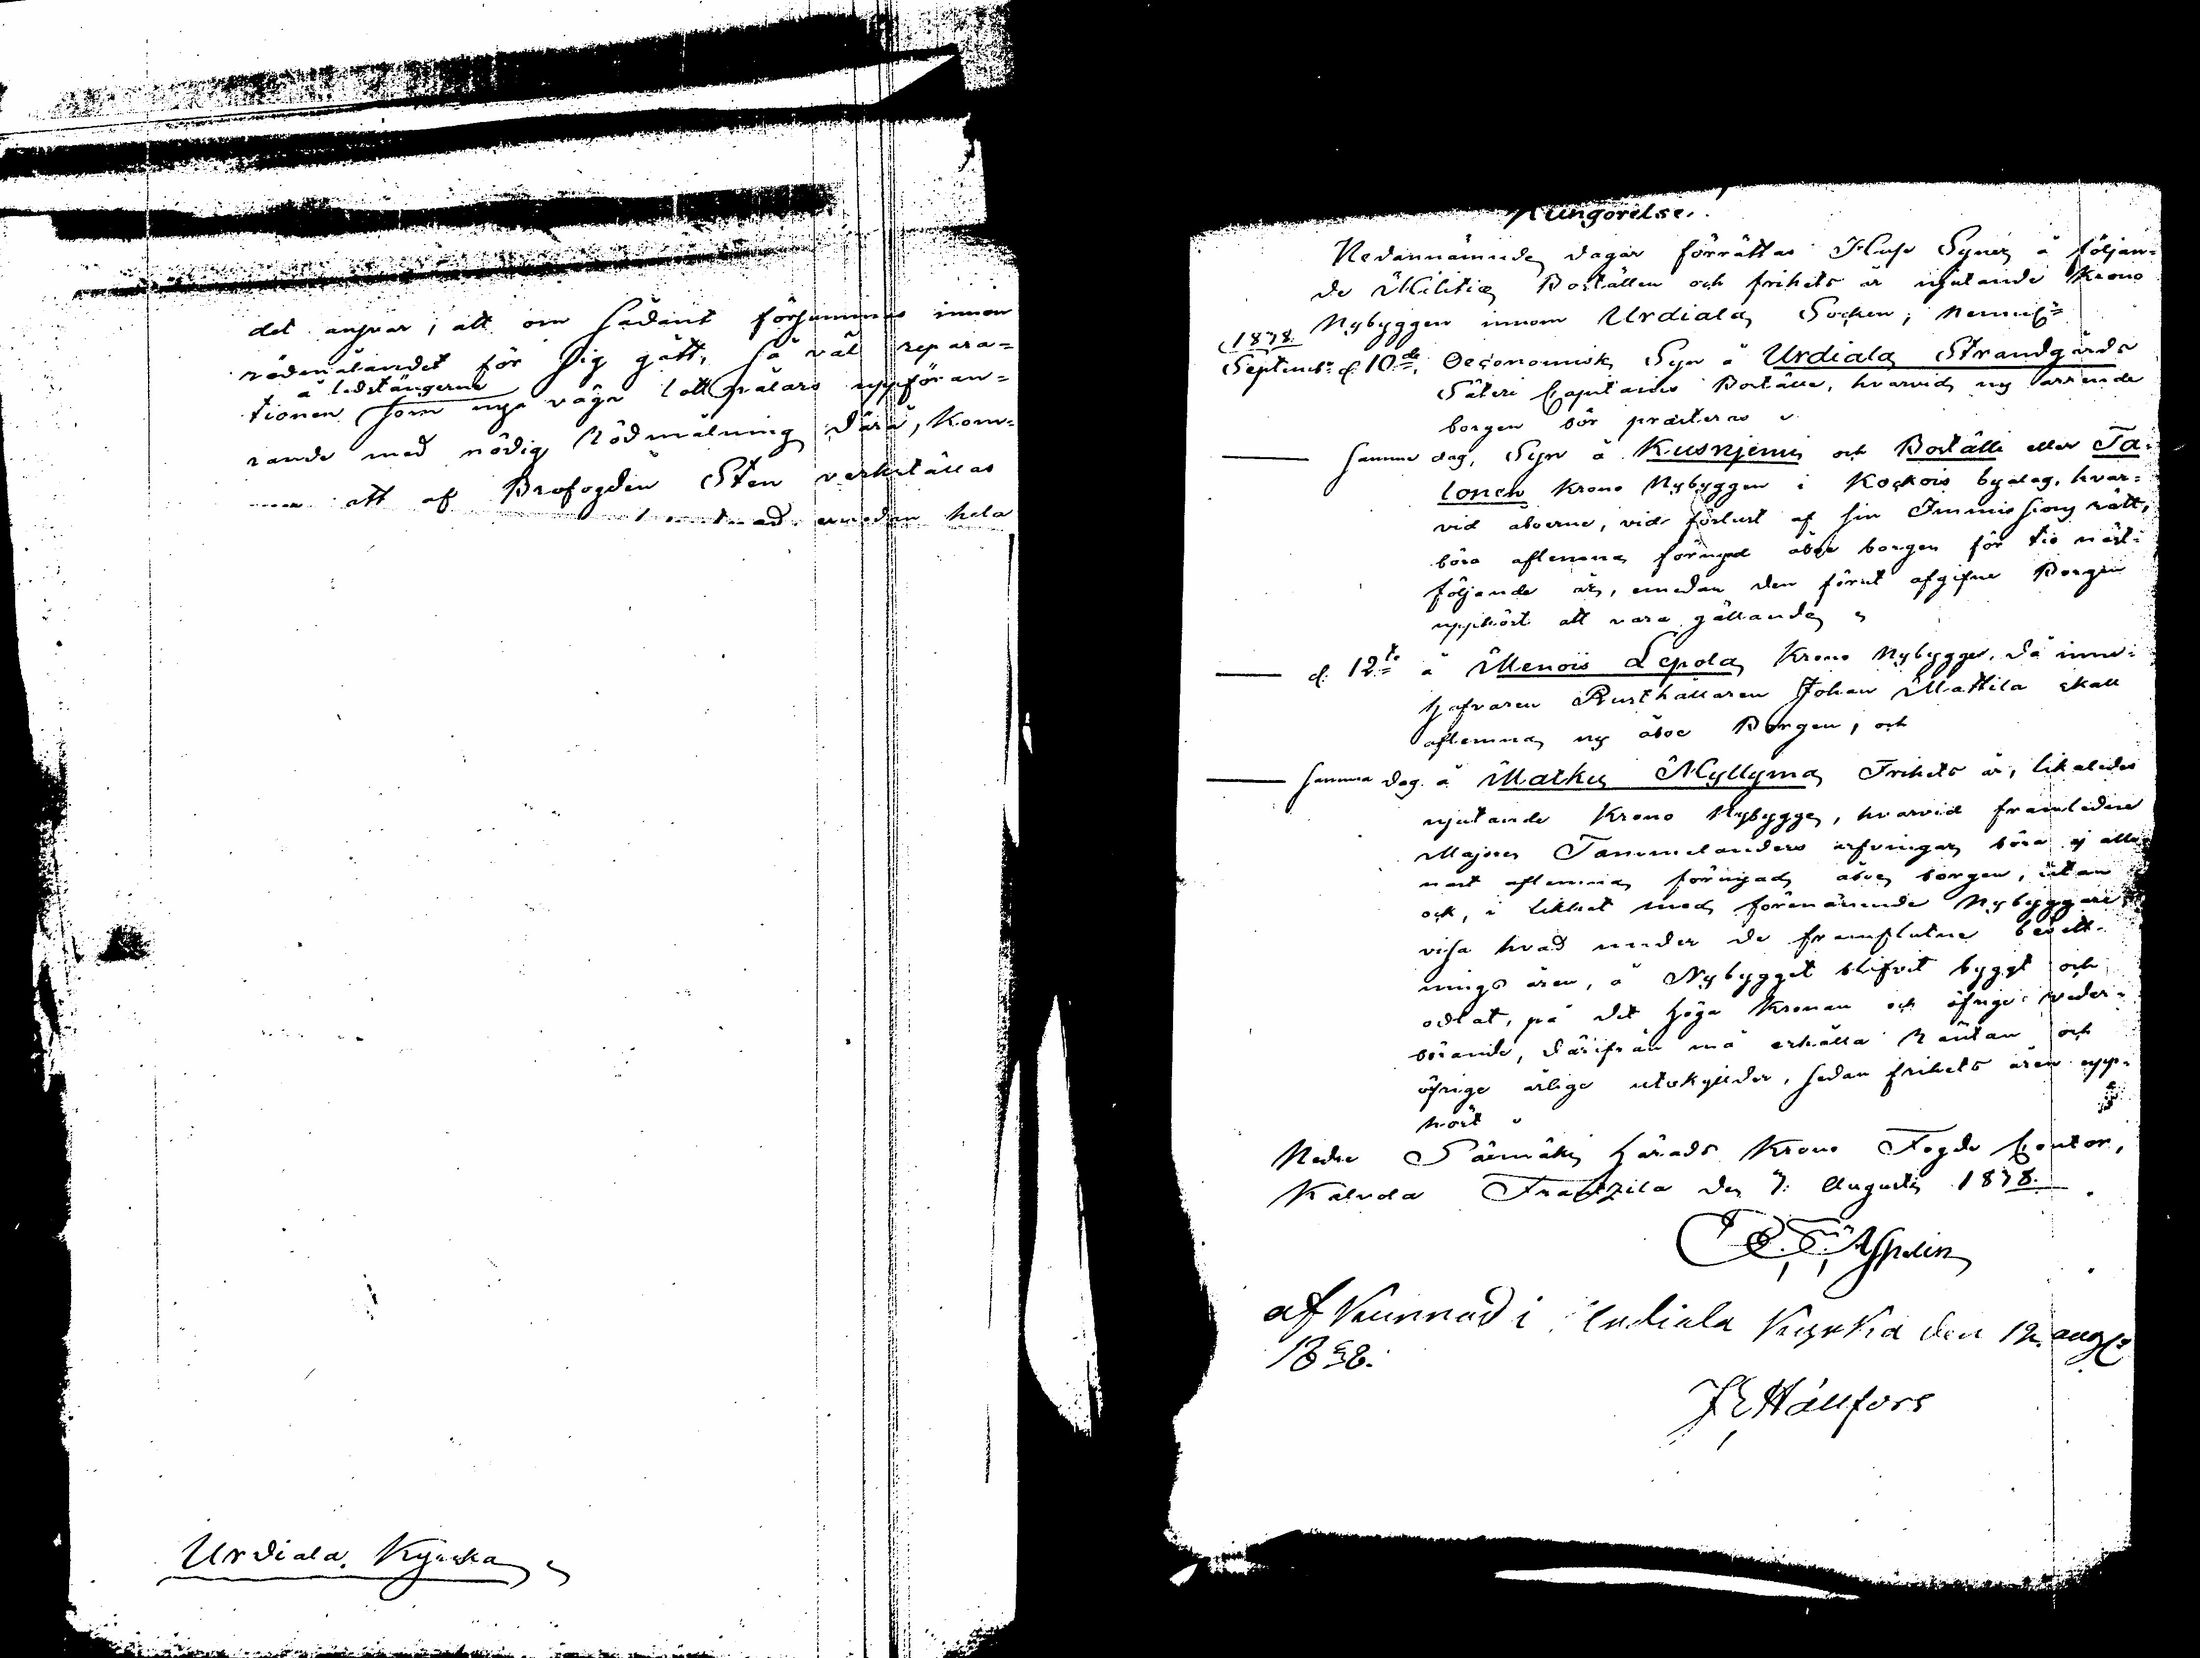 det ansvar, att om sådant försummas innom
rödmålandet för sig gått, så väl repara=
å ledstängerne
tionen som nya våga lott pålars uppföran=
rande med nödig Rödmålning därå, kom=
att af Brofogden Sten verkställas
emedan hela
Urdiala Kyrka
Kungörelse.
Nedannämnde dagar förrättas Huse Syner å följan=
de Militiæ Boställen och frihets år njutande Krono
Nybyggen innom Urdiala Socken, nemln
1838.
Septembr d. 10de, Oeconomisk Syn å Urdiala Strandgårds
Säteri Capitaines Boställe, hvarvid ny arrende
borgen bör præsteras
Samma dag, Syn å Kusnjemi och Boställe eller Ta=
lonen Krono Nybyggen i Kockois byalag, hvar=
vid åboerne, vid förlust af sin Immissions rätt,
böra aflemna förnyad åboe borgen för tio näst=
följande år, emedan den förut afgifne Borgen
upphört att vara gällande
d. 12te å Menois Lepola Krono Nybygge, då inne=
hafvaren Rusthållaren Johan Mattila skall
aflemna ny åboe Borgen, och
Samma dag å Matku Myllymaa Frihets år, likaledes
njutande Krono Nybygge, hvarvid framledne
Majoren Tammelanders arfvingar böra ej alle=
nast aflemna förnyad åboe borgen, utan
ock, i likhet med förenämnde Nybyggare
visa hvad under de framflutne besitt=
nings åren, å Nybygget blifvit byggt och
odlat, på det höga Kronan och öfrige veder=
börande, därifrån må erhålla Räntan och
öfrige årlige utskylder, sedan frihets åren upp=
hört
Nedre Säexmäki Härads Krono Fogde Contor,
Kalvola Frantzila den 7. Augusti 1838.
C. F. Aspelin
afkunnad i Urdiala Kyrka den 12 aug
1838.
J E Hällfors